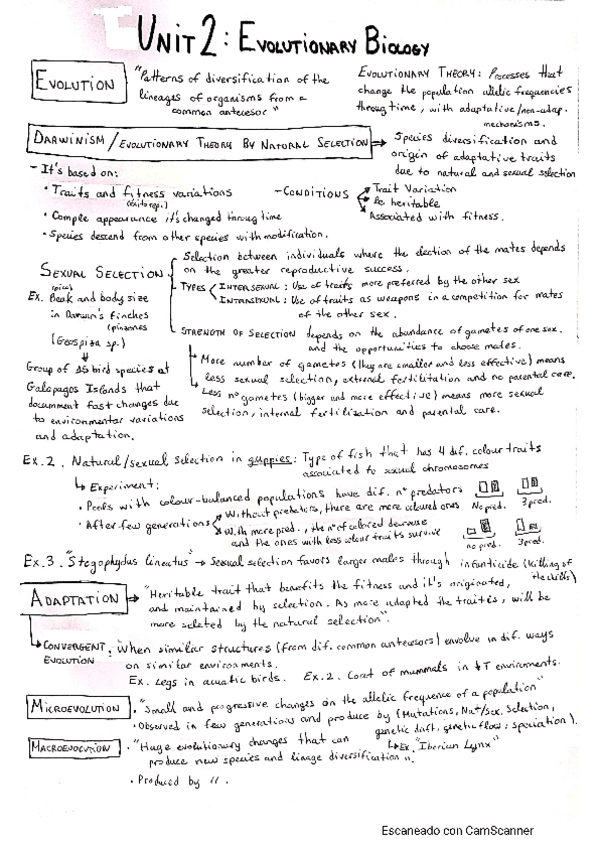 UNIT 2: EVOLUTIONARY BIOLOGY
EVOLUTION
"Patterns of diversification of the
lineages of organisms from a
common antecesor"
EVOLUTIONARY THEORY: Processes that
change the population allelic frequencies
through time, with adaptative/non-adap.
mechanisms.
DARWINISM / EVOLUTIONARY THEORY BY NATURAL SELECTION
Species diversification and
origin of adaptative traits
due to natural and sexual selection
- It's based on:
• Traits and fitness variations
• Comple appearance it's changed through time
• Species descend from other species with modification.
- CONDITIONS
Trait Variation
Be heritable
Associated with fitness.
SEXUAL SELECTION
Selection between individuals where the election of the mates depends
on the greater reproductive success.
TYPES
INTERSEXUAL: Use of traits more preferred by the other sex
INTRASEXUAL: Use of traits as weapons in a competition for mates
of the other sex.
STRENGTH OF SELECTION depends on the abundance of gametes of one sex.
and the opportunities to choose mates.
More number of gametes (they are smaller and less effective) means
less sexual selection, external fertilitation and no parental care.
Less nº gametes (bigger and more effective) means more sexual
selection, internal fertilization and parental care.
Ex. Beak and body size
in Darwin's finches
(pinzones)
(Geospiza sp.)
Group of 15 bird species at
Galapagos Islands that
document fast changes due
to environmental variations
and adaptation.
Ex. 2. Natural/sexual selection in guppies: Type of fish that has 4 dif. colour traits
associated to sexual chromosomes
Experiment:
• Pools with colour-balanced populations have dif. nº predators
No pred. 3 pred.
• After few generations
Without predators, there are more coloured ones
With more pred., the nº of colored decrease
and the ones with less colour traits survive
no pred. 3 pred.
Ex. 3. "Stegophydus lineatus" → Sexual selection favors larger males through infanticide (killing of
ADAPTATION
"Heritable trait that benefits the fitness and it's originated,
and maintained by selection. As more adapted the trait is, will be
more seleted by the natural selection".
CONVERGENT EVOLUTION
: When similar structures (from dif. common antecesors) envolve in dif. ways
on similar environments.
Ex. Legs in acuatic birds. Ex. 2. Coat of mammals in ↓T enviroments.
MICROEVOLUTION
• "Small and progressive changes on the allelic frequence of a population"
• Observed in few generations and produce by (Mutations, Nat/Sex. Selection,
genetic drift, genetic flow; speciation).
Ex. "Iberian Lynx"
MACROEVOLUTION
• "Huge evolutionary changes that can
produce new species and linage diversification".
• Produced by //.
Escaneado con CamScanner